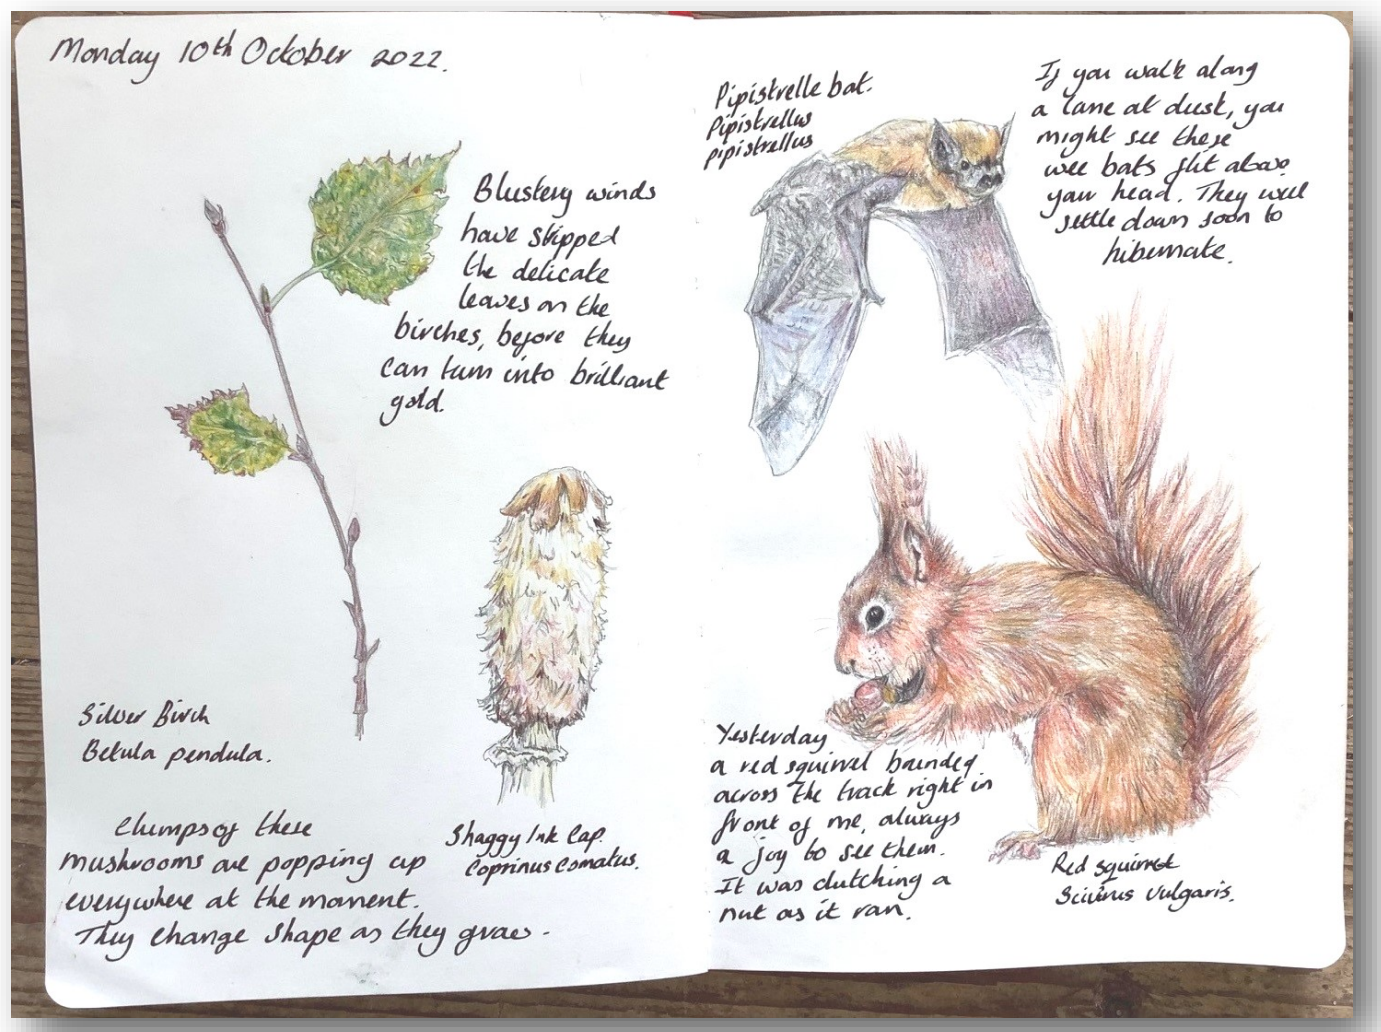 Monday 10th October 2022.
Blustery winds
have stripped
the delicate
leaves on the
birches, before they
can turn into brilliant
gold.
Silver Birch
Betula pendula.
Clumps of these
mushrooms are popping up
everywhere at the moment.
They change shape as they grow.
Shaggy Ink Cap.
Coprinus comatus.
Pipistrelle bat.
Pipistrellus
pipistrellus
If you walk along
a lane at dusk, you
might see these
wee bats flit above
your head. They will
settle down soon to
hibernate.
Yesterday
a red squirrel bounded
across the track right in
front of me, always
a joy to see them.
It was clutching a
nut as it ran.
Red squirrel
Sciurus vulgaris.